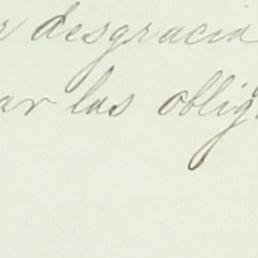 desgracia
ar las oblig